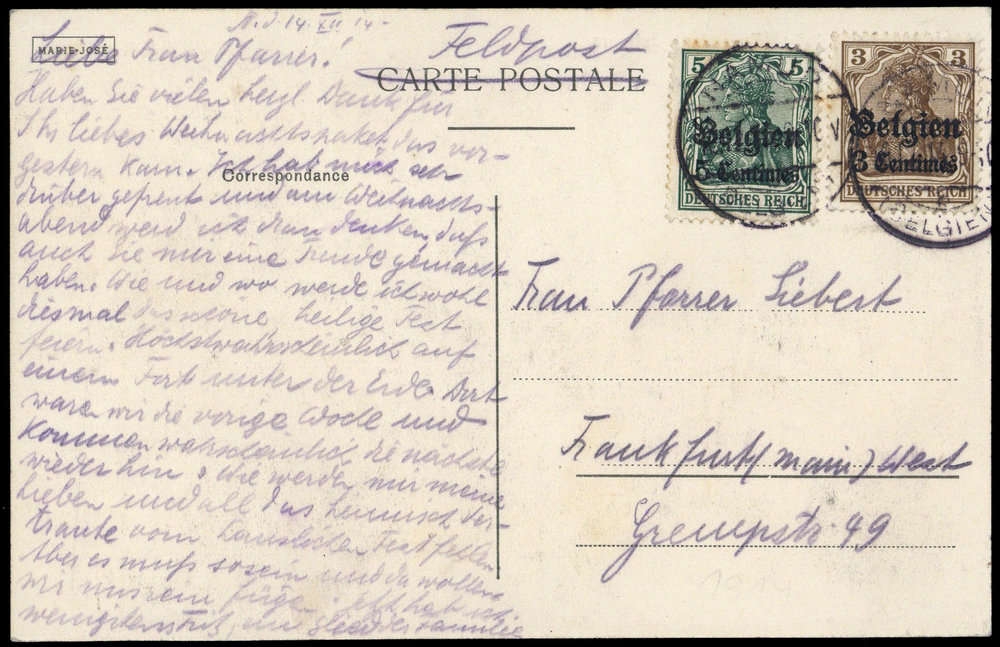 N. d. 14. XII. 14.
MARIE-JOSÉ
Liebe Frau Pfarrer!
Haben Sie vielen herzl Dank für
Ihr liebes Weihnachtspaket, das vor-
gestern kam. Ich hab mich sehr
drüber gefreut und am Weihnachts-
abend werd ich dran denken, daß
auch Sie mir eine Freude gemacht
haben. Wie und wo werde ich wohl
diesmal das schöne heilige Fest
feiern. Höchstwahrscheinlich auf
einem Fort unter der Erde. Dort
waren wir die vorige Woche und
kommen wahrscheinlich die nächste
wieder hin. Wie werden mir meine
Lieben und all das heimisch Ver-
traute vom häuslichen Fest fehlen
Aber es muß so sein und da wollen
wir uns rein fügen.
wenigstens ein Glied der Familie
Feldpost
CARTE POSTALE
Correspondance
5 5
Belgien
5 Centimes
DEUTSCHES REICH
3 3
Belgien
3 Centimes
DEUTSCHES REICH
BELGIEN
Frau Pfarrer Siebert
Frankfurt (Main) West
Grempstr. 49